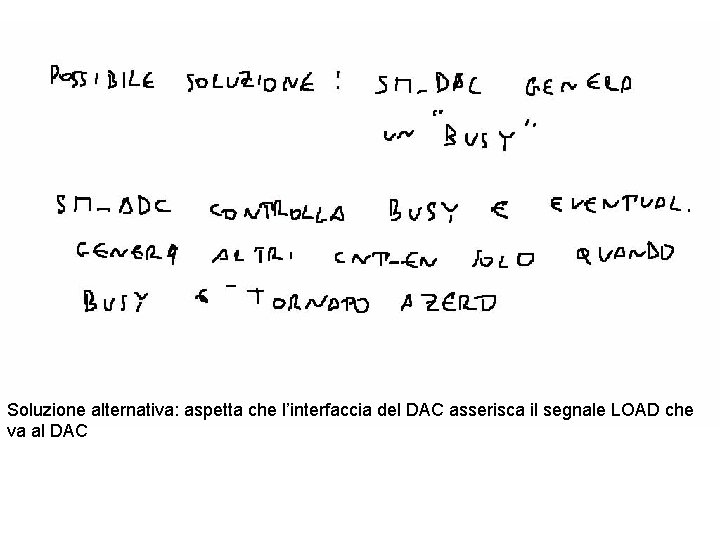 POSSIBILE SOLUZIONE! SM_DAC GENERA
UN "BUSY"
SM_ADC CONTROLLA BUSY E EVENTUAL.
GENERA ALTRI CNT_EN SOLO QUANDO
BUSY E' TORNATO A ZERO
Soluzione alternativa: aspetta che l'interfaccia del DAC asserisca il segnale LOAD che
va al DAC